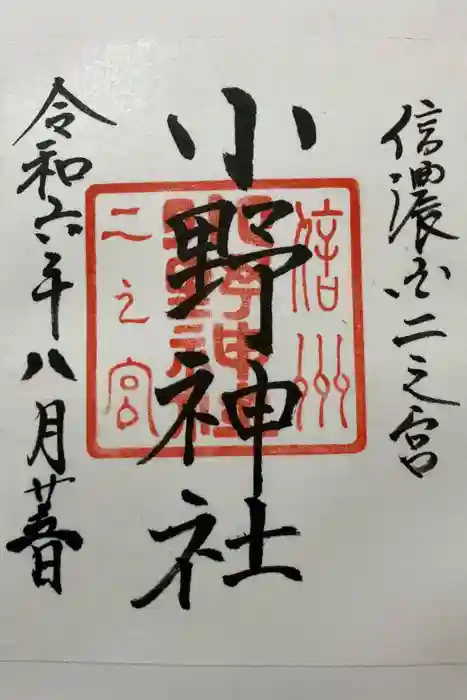 信濃国二之宮
小野神社
令和六年八月
信州
小野神社
二之宮